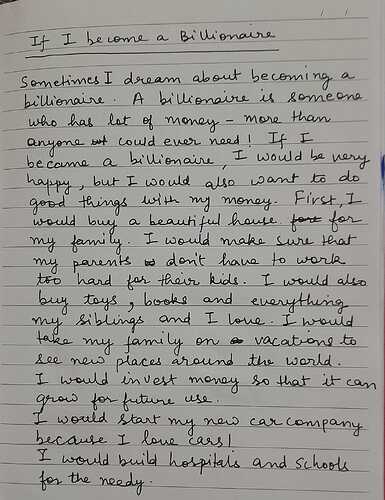 If I become a Billionaire
Sometimes I dream about becoming a
billionaire. A billionaire is someone
who has lot of money - more than
anyone could ever need! If I
became a billionaire, I would be very
happy, but I would also want to do
good things with my money. First, I
would buy a beautiful house for
my family. I would make sure that
my parents don't have to work
too hard for their kids. I would also
buy toys, books and everything
my siblings and I love. I would
take my family on vacations to
see new places around the world.
I would invest money so that it can
grow for future use.
I would start my new car company
because I love cars!
I would build hospitals and schools
for the needy.